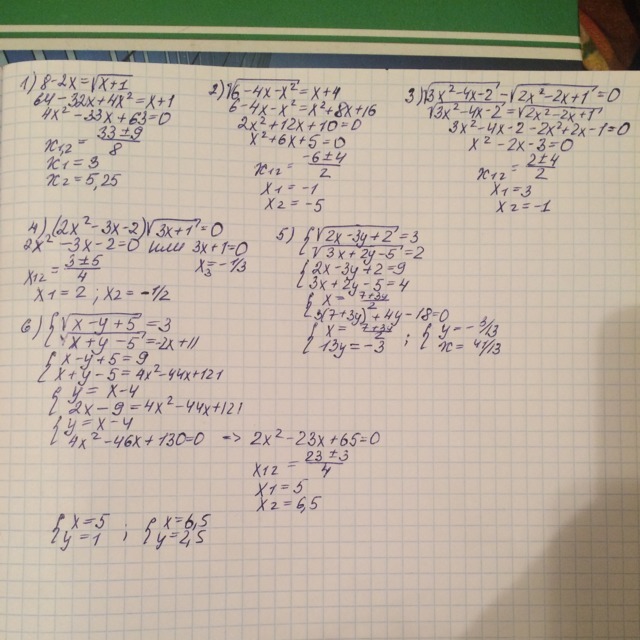 1) 8-2x=√(x+1)
64-32x+4x²=x+1
4x²-33x+63=0
x₁,₂ = (33±9)/8
x₁=3
x₂=5,25
2) √(6-4x-x²)=x+4
6-4x-x²=x²+8x+16
2x²+12x+10=0
x²+6x+5=0
x₁₂ = (-6±4)/2
x₁=-1
x₂=-5
3) √(3x²-4x-2) - √(2x²-2x+1)=0
√(3x²-4x-2)=√(2x²-2x+1)
3x²-4x-2-2x²+2x-1=0
x²-2x-3=0
x₁₂ = (2±4)/2
x₁=3
x₂=-1
4) (2x²-3x-2)√(3x+1)=0
2x²-3x-2=0 или 3x+1=0
x₁₂ = (3±5)/4 x₃=-1/3
x₁=2; x₂=-1/2
5) { √(2x-3y+2)=3
√(3x+2y-5)=2
{ 2x-3y+2=9
3x+2y-5=4
{ x = (7+3y)/2
3(7+3y)+4y-18=0
{ x = (7+3y)/2 ; { y=-3/13
13y=-3 x=41/13
6) { √(x-y+5)=3
√(x+y-5)=-2x+11
{ x-y+5=9
x+y-5=4x²-44x+121
{ y=x-4
2x-9=4x²-44x+121
{ y=x-4
4x²-46x+130=0 => 2x²-23x+65=0
x₁₂ = (23±3)/4
x₁=5
x₂=6,5
{ x=5 ; { x=6,5
y=1 y=2,5